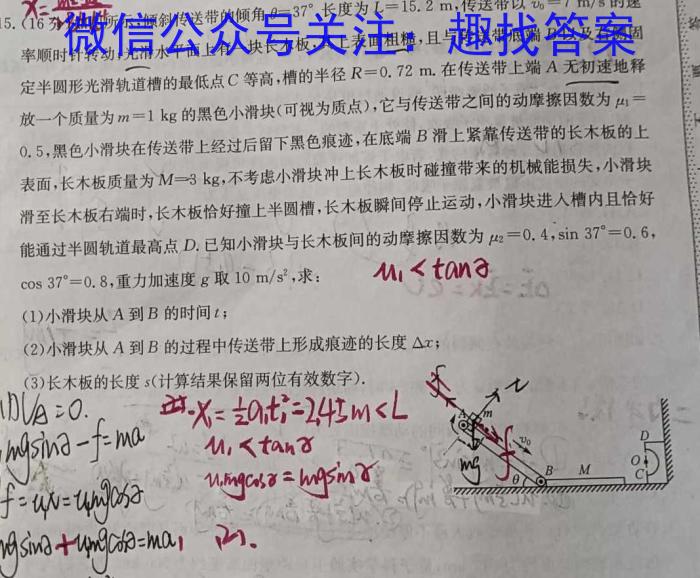 15.(16分)
所示,倾斜传送带的倾角θ=37°,长度为L=15.2 m,传送带以v₀=7 m/s的速
微信公众号关注:趣找答案
率顺时针转动,光滑水平面上有一块长木板,上表面粗糙,且与传送带底端B以及右侧固
定半圆形光滑轨道槽的最低点C等高,槽的半径R=0.72 m.在传送带上端A无初速地释
放一个质量为m=1 kg的黑色小滑块(可视为质点),它与传送带之间的动摩擦因数为μ₁=
0.5,黑色小滑块在传送带上经过后留下黑色痕迹,在底端B滑上紧靠传送带的长木板的上
表面,长木板质量为M=3 kg,不考虑小滑块冲上长木板时碰撞带来的机械能损失,小滑块
滑至长木板右端时,长木板恰好撞上半圆槽,长木板瞬间停止运动,小滑块进入槽内且恰好
能通过半圆轨道最高点D.已知小滑块与长木板间的动摩擦因数为μ₂=0.4,sin 37°=0.6,
cos 37°=0.8,重力加速度g取10 m/s²,求:
u₁<tanθ
(1)小滑块从A到B的时间t;
(2)小滑块从A到B的过程中传送带上形成痕迹的长度Δx;
(3)长木板的长度s(计算结果保留两位有效数字).
(1)VA=0.
x₁=½a₁t₁²=2.45m<L
mgsinθ-f=ma
u₁<tanθ
f=uN=u₁mgcosθ
u₁mgcosθ=mgsinθ
mgsinθ+u₁mgcosθ=ma₁
(2).
f
N
A
m
f
v₀
mg
θ
B
M
D
O
C